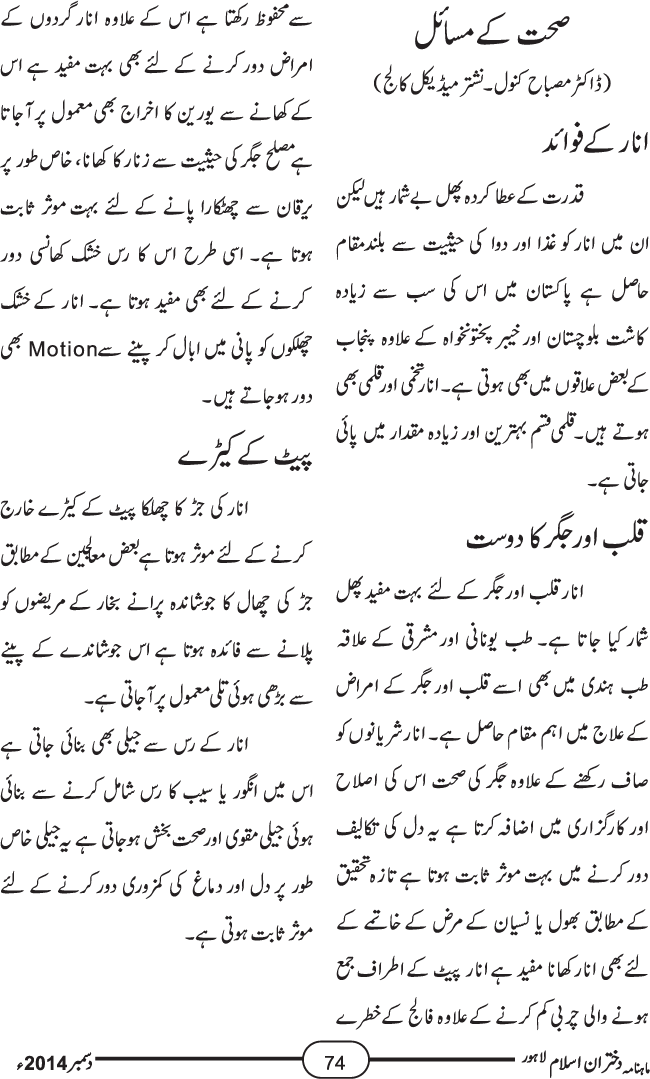 صحت کے مسائل
(ڈاکٹر مصباح کنول۔ نشتر میڈیکل کالج)
انار کے فوائد
قدرت کے عطا کردہ پھل بے شمار ہیں لیکن
ان میں انار کو غذا اور دوا کی حیثیت سے بلند مقام
حاصل ہے پاکستان میں اس کی سب سے زیادہ
کاشت بلوچستان اور خیبر پختونخواہ کے علاوہ پنجاب
کے بعض علاقوں میں بھی ہوتی ہے۔ انار تخمی اور قلمی بھی
ہوتے ہیں۔ قلمی قسم بہترین اور زیادہ مقدار میں پائی
جاتی ہے۔
قلب اور جگر کا دوست
انار قلب اور جگر کے لئے بہت مفید پھل
شمار کیا جاتا ہے۔ طب یونانی اور مشرقی کے علاقہ
طب ہندی میں بھی اسے قلب اور جگر کے امراض
کے علاج میں اہم مقام حاصل ہے۔ انار شریانوں کو
صاف رکھنے کے علاوہ جگر کی صحت اس کی اصلاح
اور کارگزاری میں اضافہ کرتا ہے یہ دل کی تکالیف
دور کرنے میں بہت موثر ثابت ہوتا ہے تازہ تحقیق
کے مطابق بھول یا نسیان کے مرض کے خاتمے کے
لئے بھی انار کھانا مفید ہے انار پیٹ کے اطراف جمع
ہونے والی چربی کم کرنے کے علاوہ فالج کے خطرے
سے محفوظ رکھتا ہے اس کے علاوہ انار گردوں کے
امراض دور کرنے کے لئے بھی بہت مفید ہے اس
کے کھانے سے یورین کا اخراج بھی معمول پر آجاتا
ہے مصلح جگر کی حیثیت سے زنار کا کھانا، خاص طور پر
یرقان سے چھٹکارا پانے کے لئے بہت موثر ثابت
ہوتا ہے۔ اسی طرح اس کا رس خشک کھانسی دور
کرنے کے لئے بھی مفید ہوتا ہے۔ انار کے خشک
چھلکوں کو پانی میں ابال کر پینے سے Motion بھی
دور ہوجاتے ہیں۔
پیٹ کے کیڑے
انار کی جڑ کا چھلکا پیٹ کے کیڑے خارج
کرنے کے لئے موثر ہوتا ہے بعض معالجین کے مطابق
جڑ کی چھال کا جوشاندہ پرانے بخار کے مریضوں کو
پلانے سے فائدہ ہوتا ہے اس جوشاندے کے پینے
سے بڑھی ہوئی تلی معمول پر آجاتی ہے۔
انار کے رس سے جیلی بھی بنائی جاتی ہے
اس میں انگور یا سیب کا رس شامل کرنے سے بنائی
ہوئی جیلی مقوی اور صحت بخش ہوجاتی ہے یہ جیلی خاص
طور پر دل اور دماغ کی کمزوری دور کرنے کے لئے
موثر ثابت ہوتی ہے۔
ماہنامہ دختران اسلام لاہور 74 دسمبر 2014ء